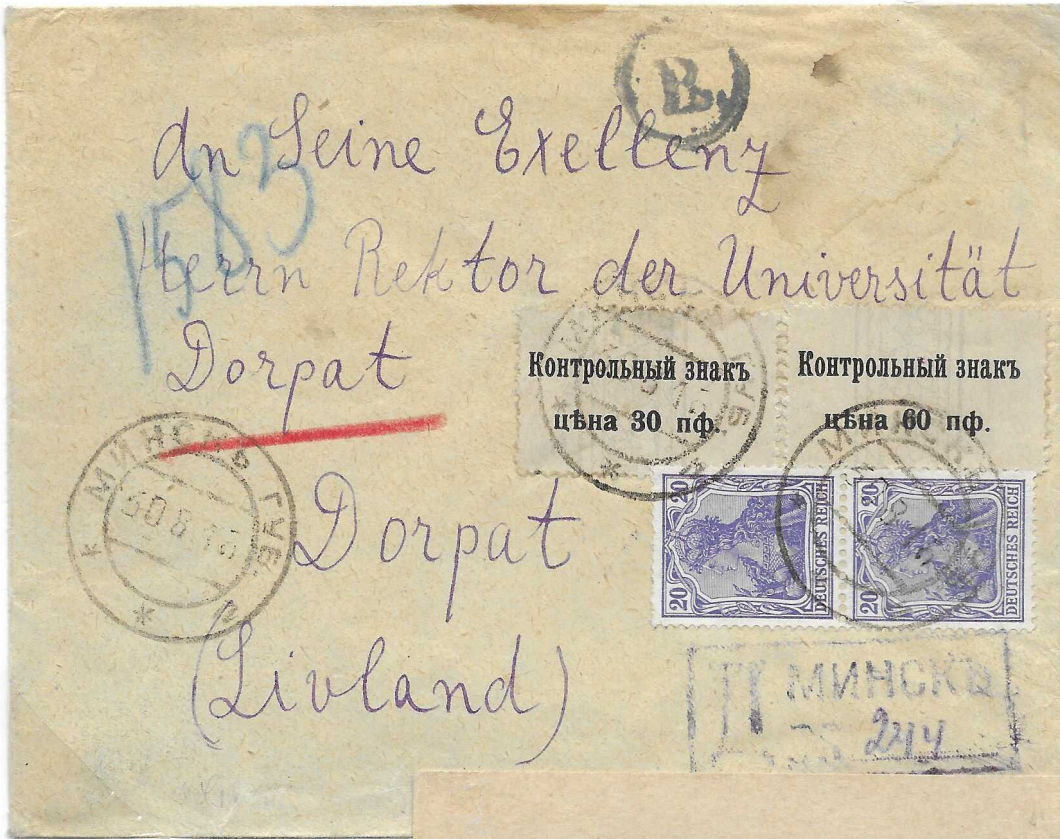 В.
An Seine Exellenz
1583
Herrn Rektor der Universität
Dorpat
Контрольный знакъ
цѣна 30 пф.
Контрольный знакъ
цѣна 60 пф.
МИНСКЪ ГУБ.
30.8.18
Dorpat
20 20
DEUTSCHES REICH
20 20
DEUTSCHES REICH
(Livland)
МИНСКЪ
244